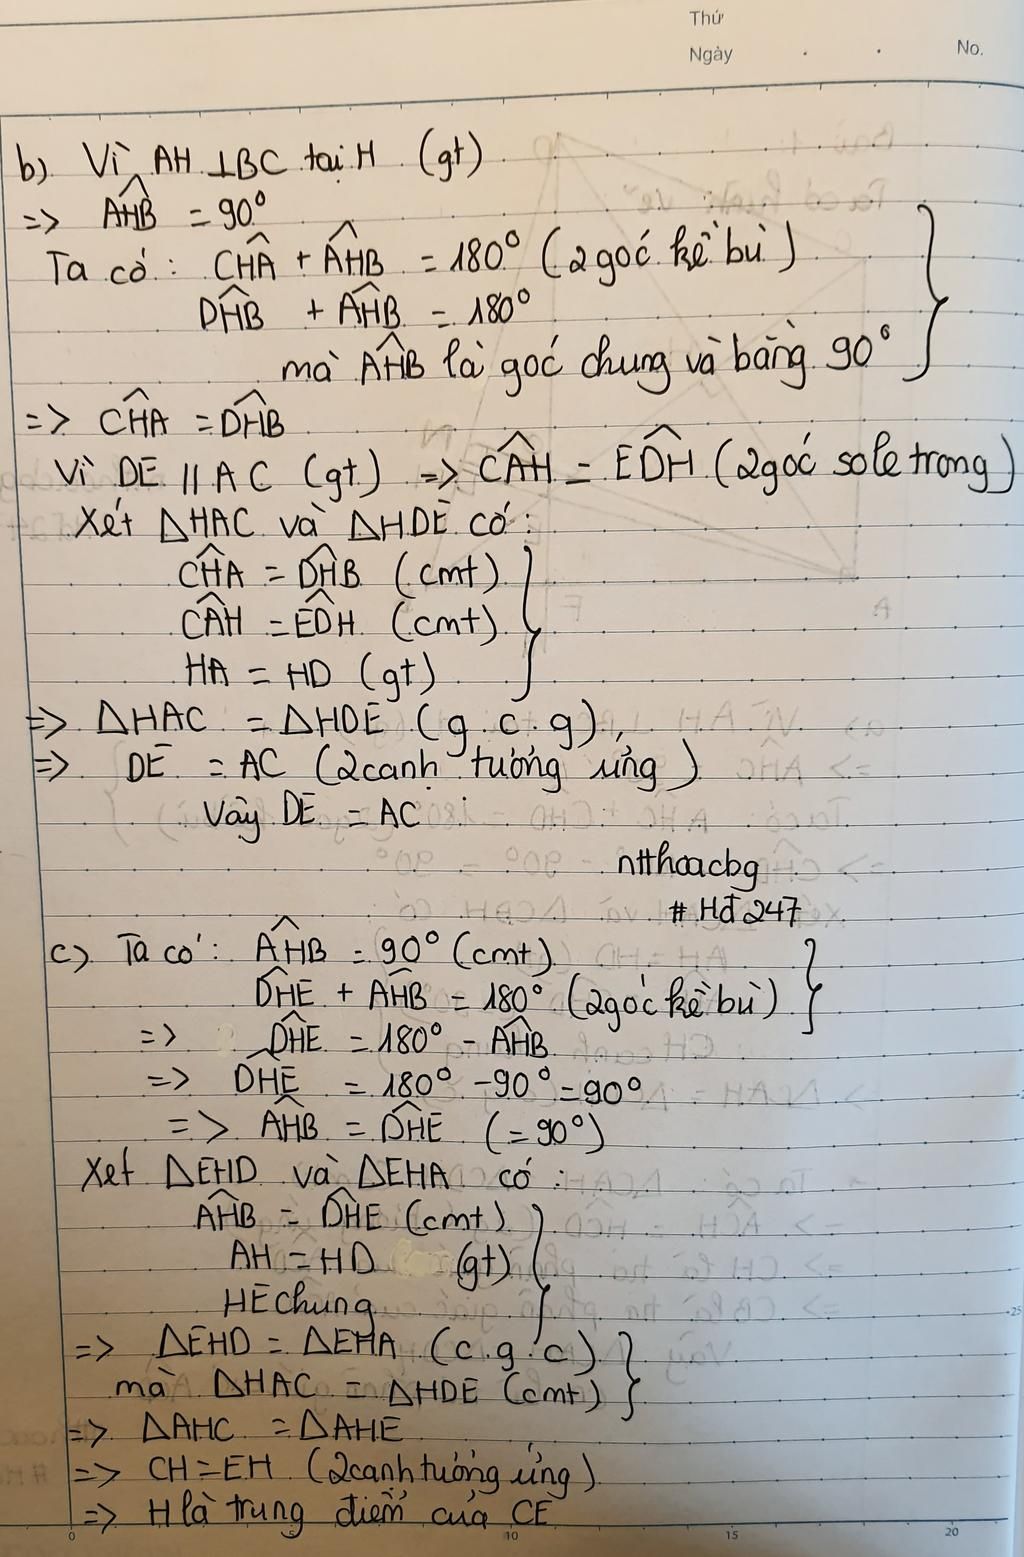 Thứ
Ngày . . No.
b) Vì AH ⊥BC tại H (gt)
=> AHB = 90°
Ta có : CHA + AHB = 180° (2 góc kề bù)
DHB + AHB = 180°
mà AHB là góc chung và bằng 90°
=> CHA = DHB
Vì DE // AC (gt) => CAH = EDH (2 góc sole trong)
Xét ΔHAC và ΔHDE có :
CHA = DHB (cmt)
CAH = EDH (cmt)
HA = HD (gt)
=> ΔHAC = ΔHDE (g.c.g)
=> DE = AC (2 cạnh tương ứng)
Vậy DE = AC
ntthoacbg
# Hđ 247
c) Ta có : AHB = 90° (cmt)
DHE + AHB = 180° (2 góc kề bù)
=> DHE = 180° - AHB
=> DHE = 180° - 90° = 90°
=> AHB = DHE (= 90°)
Xét ΔEHD và ΔEHA có :
AHB = DHE (cmt)
AH = HD (gt)
HE chung
=> ΔEHD = ΔEHA (c.g.c)
mà ΔHAC = ΔHDE (cmt)
=> ΔAHC = ΔAHE
=> CH = EH (2 cạnh tương ứng)
=> H là trung điểm của CE
0 10 15 20